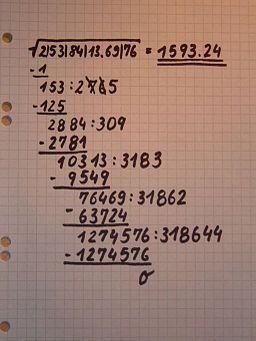 √2|53|84|13,69|76 = 1593.24
-1
153:2765
-125
2884:309
-2781
10313:3183
- 9549
76469:31862
- 63724
1274576:318644
- 1274576
0